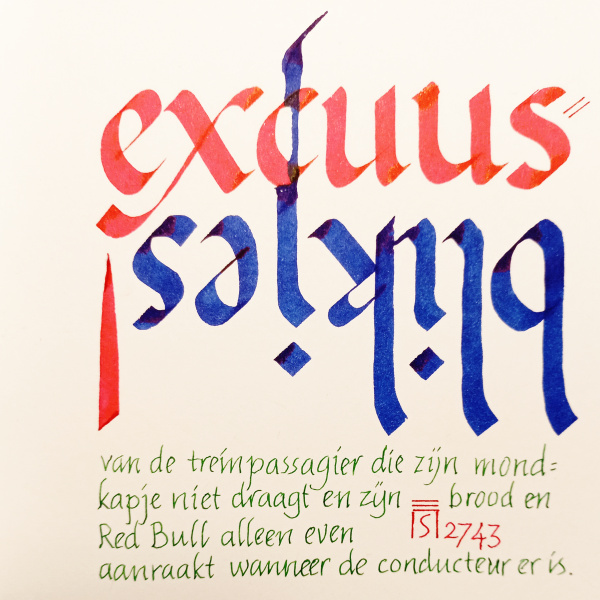 excuus=
blikjes
van de treinpassagier die zijn mond=
kapje niet draagt en zijn brood en
Red Bull alleen even
S 2743
aanraakt wanneer de conducteur er is.